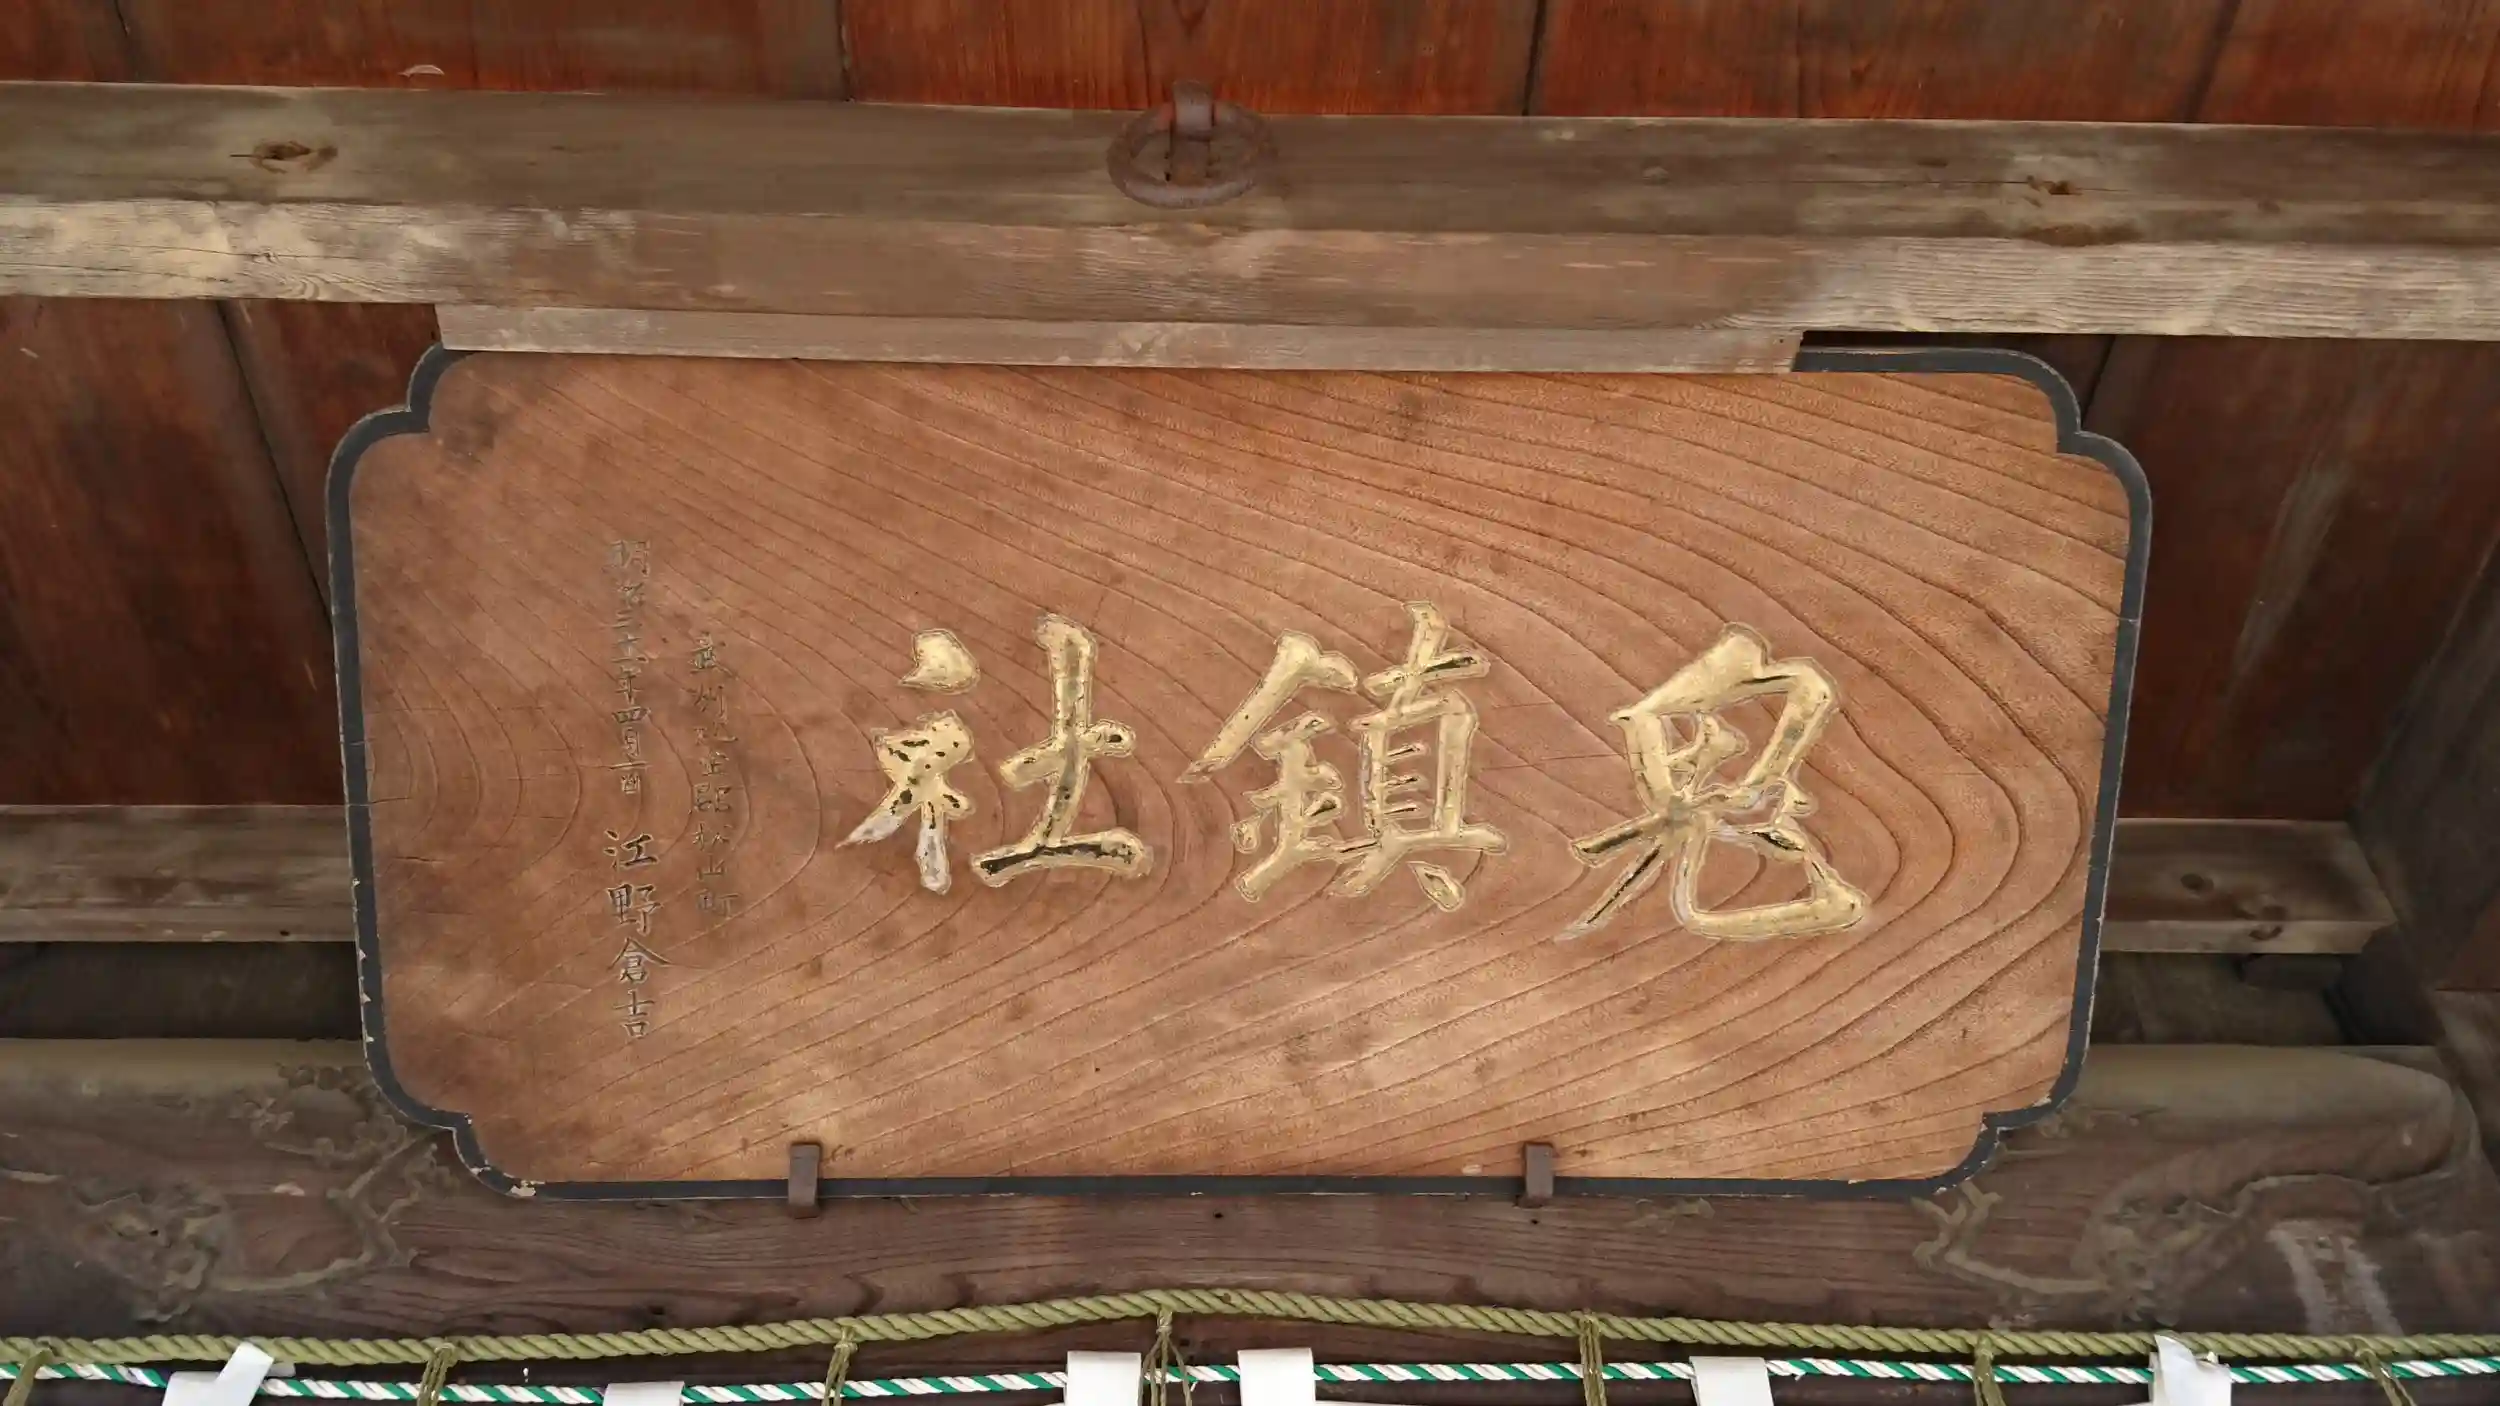 鬼鎮社
武州比企郡松山町
明治三十年四月一酉 江野倉吉